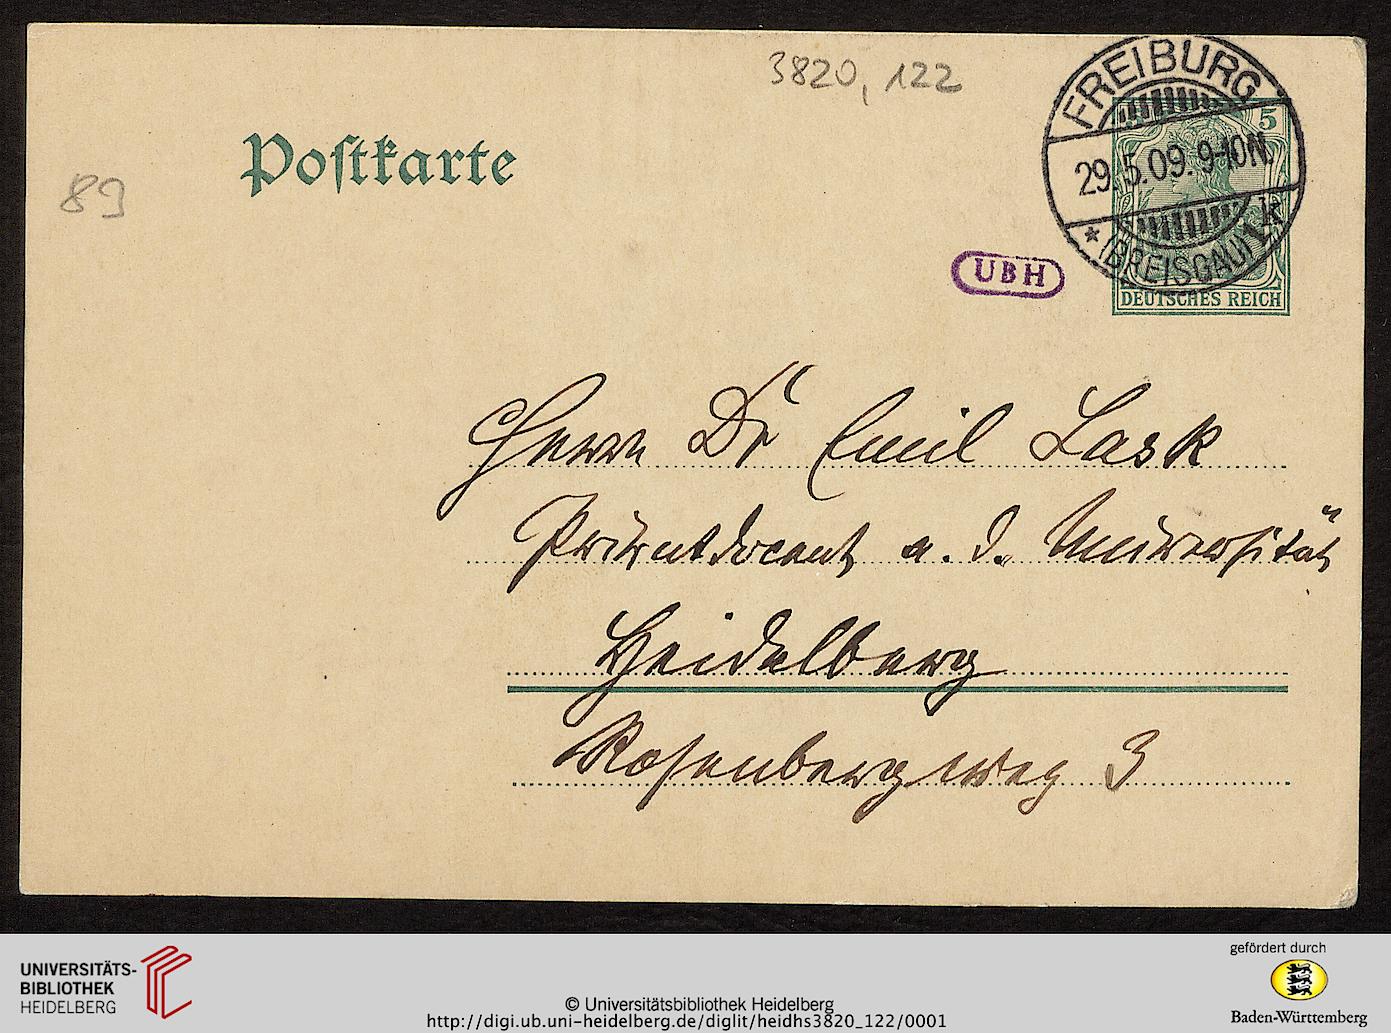 3820, 122
Postkarte
89
FREIBURG
29.5.09. 9-10N.
* (BREISGAU) 1k
5
DEUTSCHES REICH
UBH
Herrn Dr Emil Lask
Privatdocent a. d. Universität
Heidelberg
Rosenbergweg 3
UNIVERSITÄTS-
BIBLIOTHEK
HEIDELBERG
© Universitätsbibliothek Heidelberg
http://digi.ub.uni-heidelberg.de/diglit/heidhs3820_122/0001
gefördert durch
Baden-Württemberg